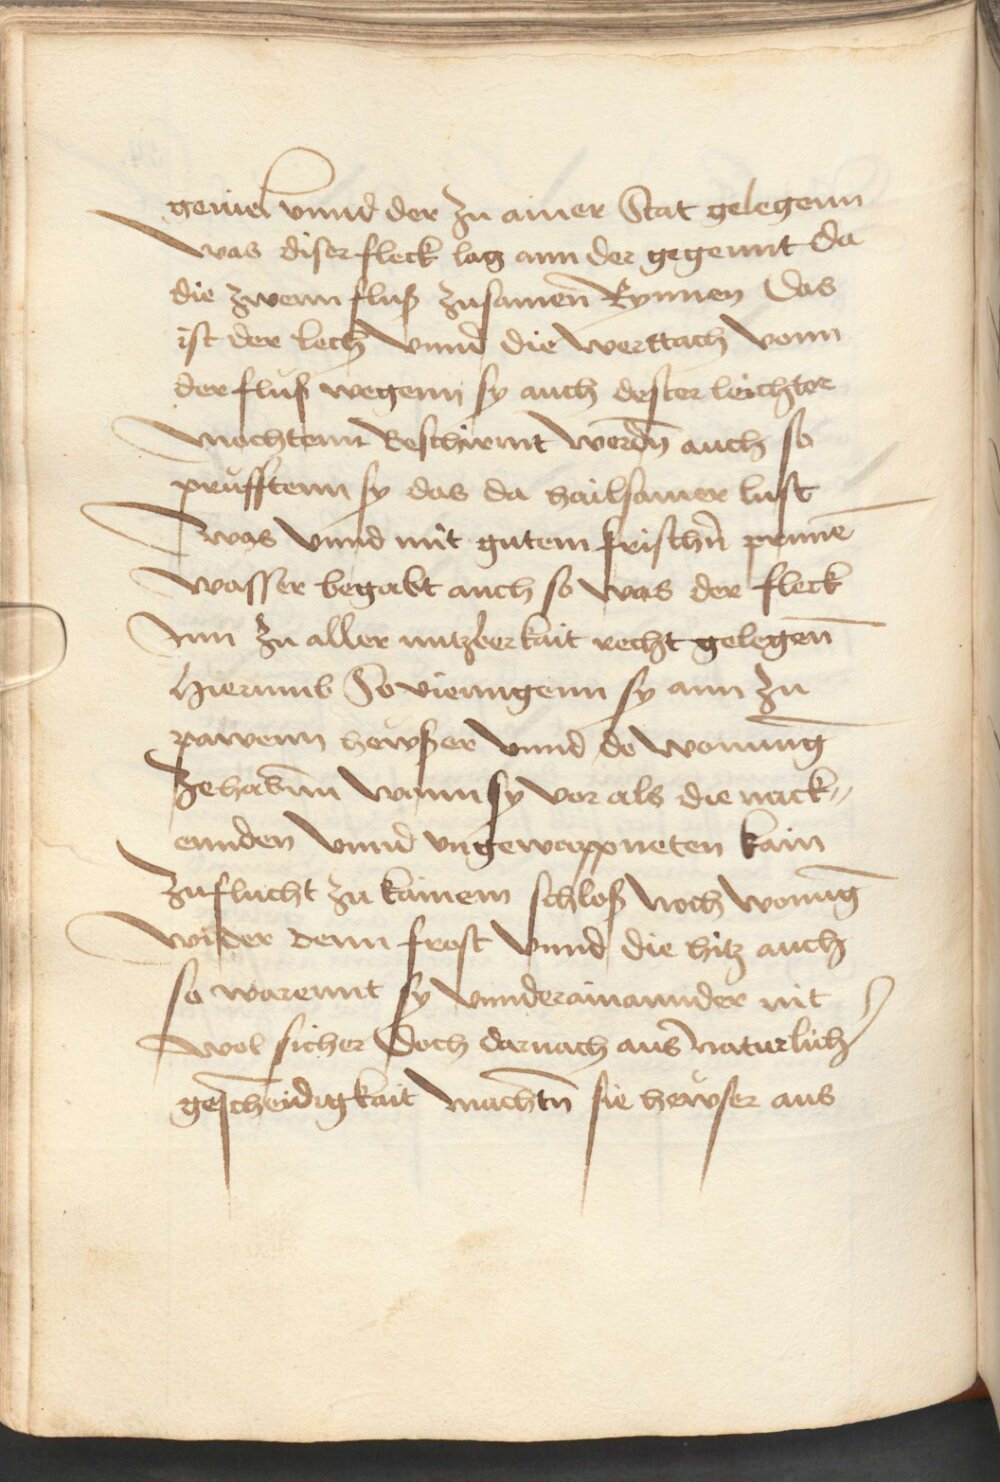 geuiel vnnd der zu ainer Stat gelegenn
was diser fleck lag ann der gegennt da
die zwenn fluß zusamen̄ Rynnen Das
ist der lech vnnd die werttach vonn
der fluß wegenn sy auch dester leichter
mochtenn Beschirmt werdn̄ auch so
prufftenn sy das da hailsamer lust
was vnnd mit gutem frischn̄ prunnē
wasser begabt auch so was der fleck
Inn zu aller nutzberkait recht gelegen̄
Hierumb So vienngenn sy ann zu
pawenn hewser vnnd do wonung
zehabenn wann sy vor als die nack〃
ennden vnnd vngewappneten kain
zuflucht zu kainem schloß noch wonung
wider denn frost vnnd die hitz auch
so warennt sy vnnderainannder nit
wol sicher Doch darnach aus naturlich
gescheidigkait machtn̄ sie hewser aus